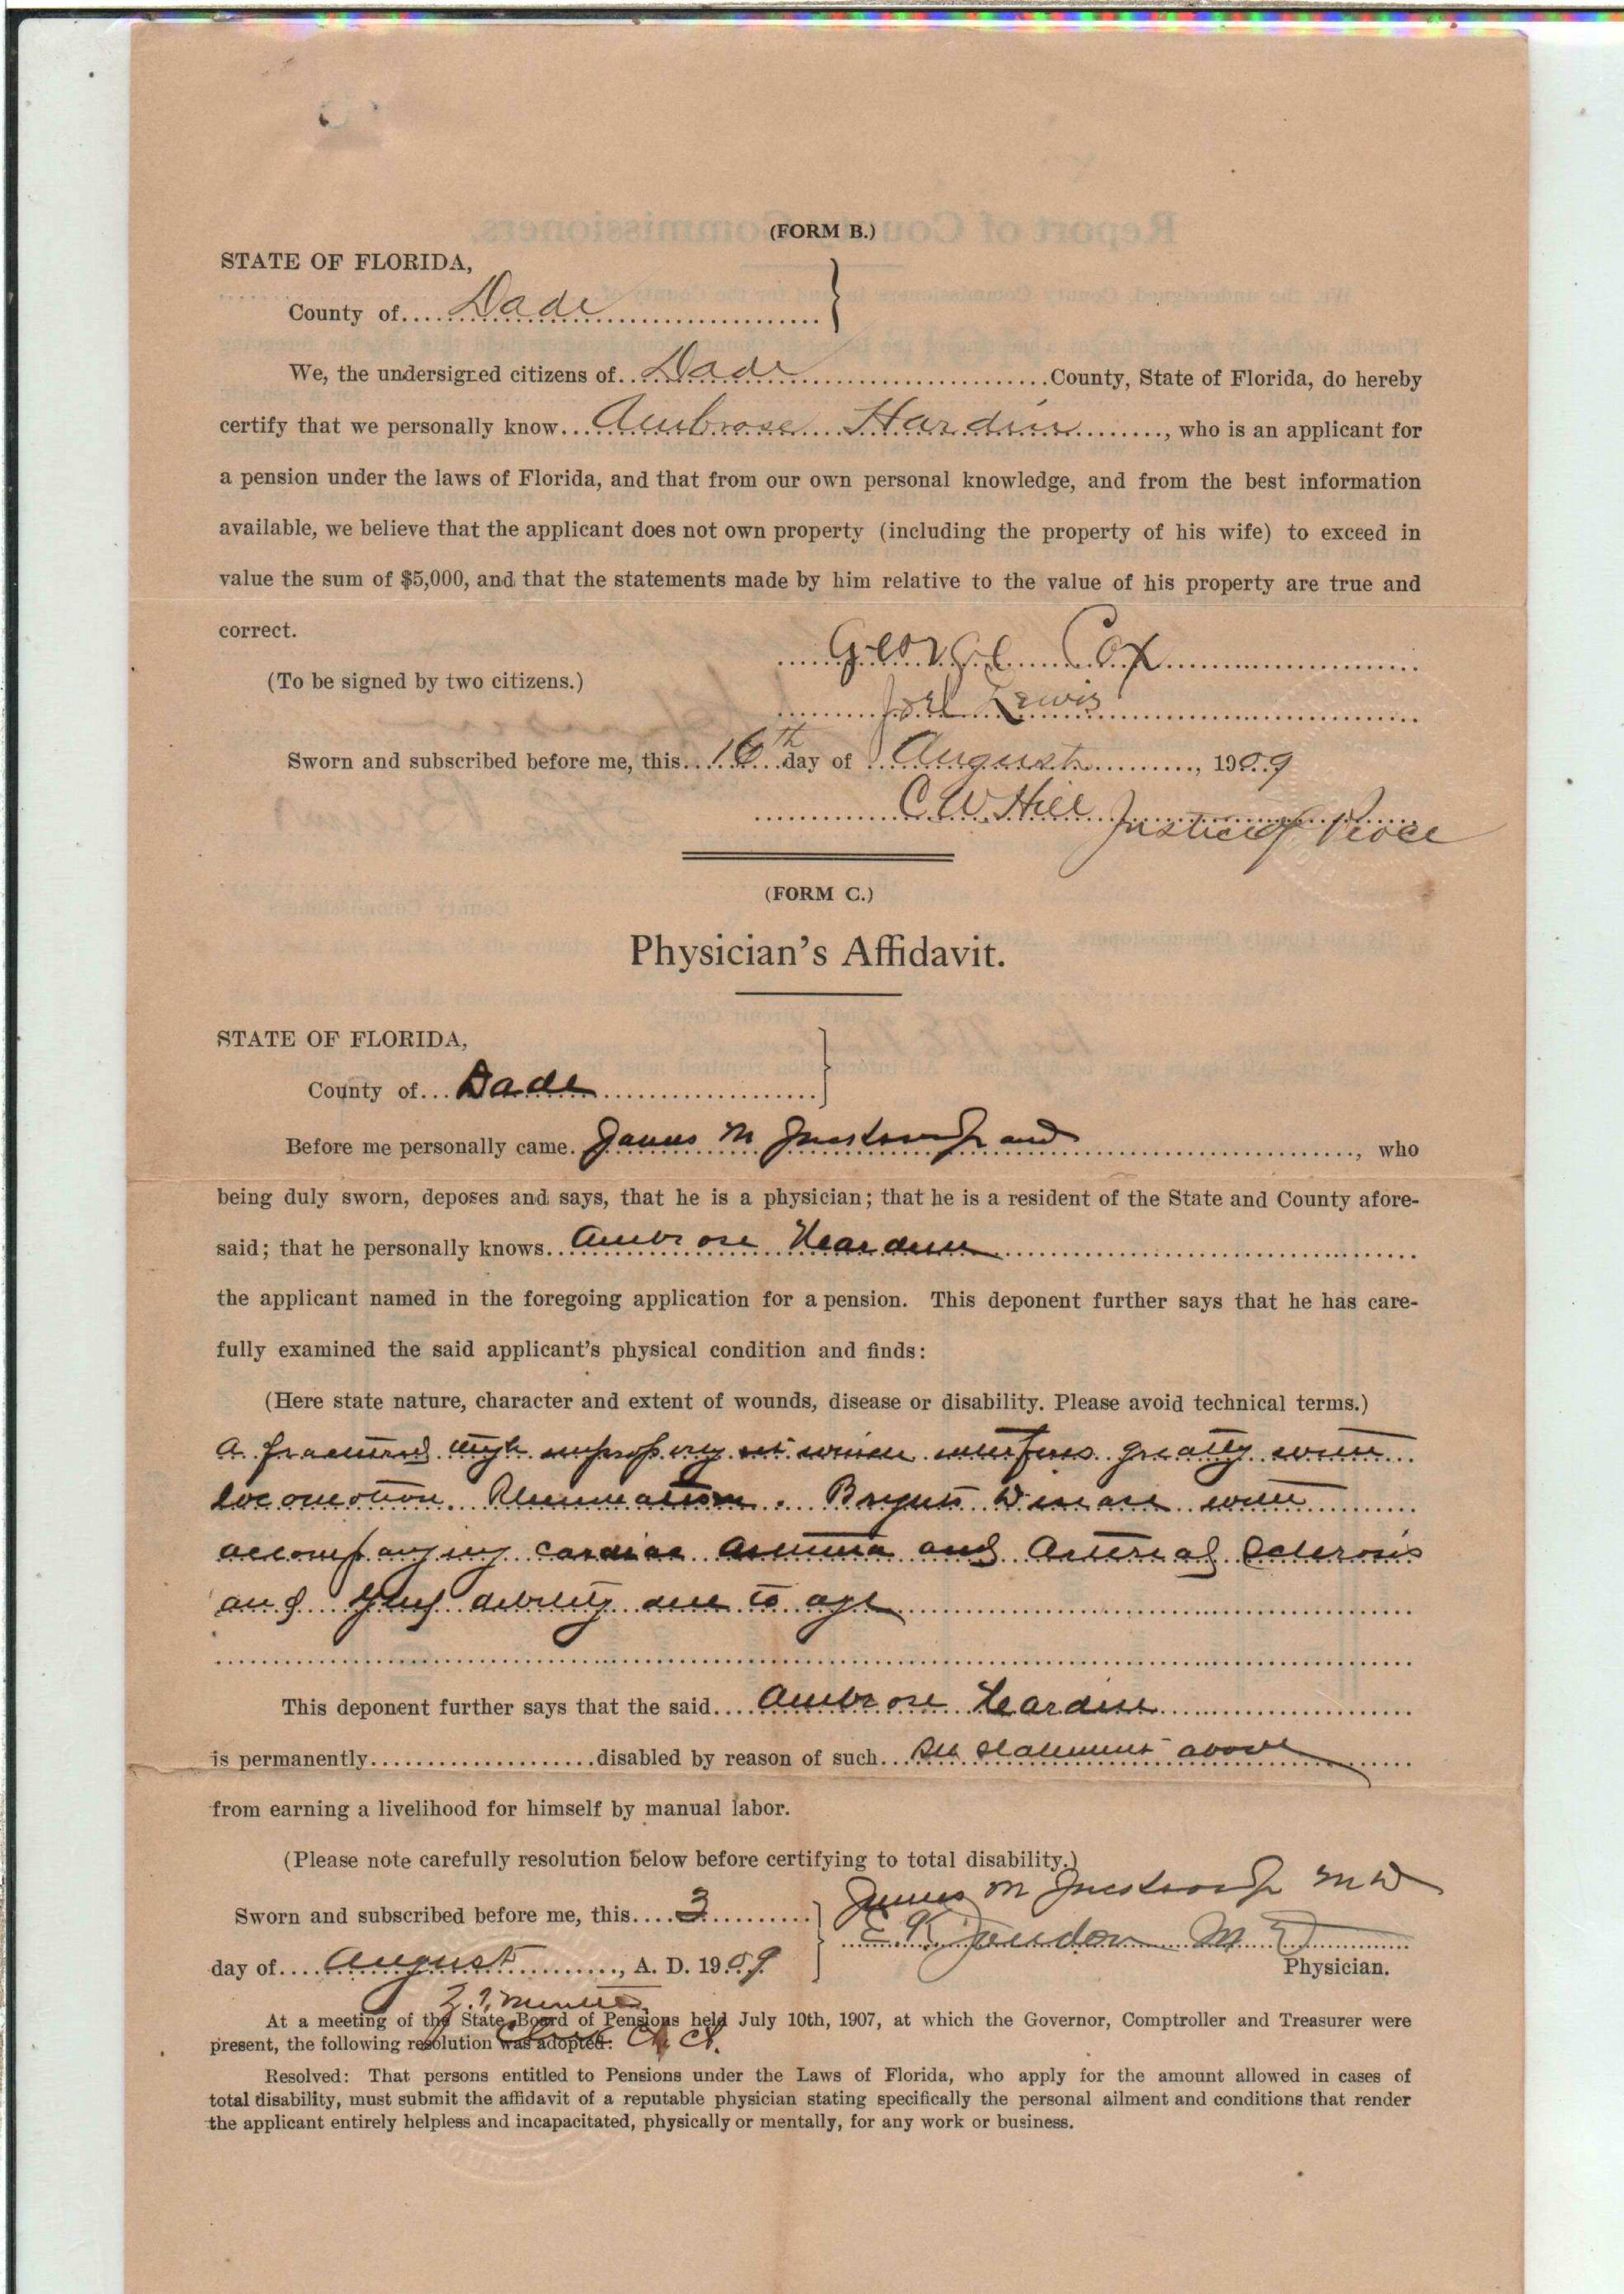 (FORM B.)
STATE OF FLORIDA,
County of Dade
We, the undersigned citizens of Dade County, State of Florida, do hereby
certify that we personally know Ambrose Hardin, who is an applicant for
a pension under the laws of Florida, and that from our own personal knowledge, and from the best information
available, we believe that the applicant does not own property (including the property of his wife) to exceed in
value the sum of $5,000, and that the statements made by him relative to the value of his property are true and
correct.
George Cox
(To be signed by two citizens.)
Joel Lewis
Sworn and subscribed before me, this 16th day of August, 1909
C W Hill Justice of Peace
(FORM C.)
Physician's Affidavit.
STATE OF FLORIDA,
County of Dade
Before me personally came James M and, who
being duly sworn, deposes and says, that he is a physician; that he is a resident of the State and County afore-
said; that he personally knows Ambrose Heardin
the applicant named in the foregoing application for a pension. This deponent further says that he has care-
fully examined the said applicant's physical condition and finds:
(Here state nature, character and extent of wounds, disease or disability. Please avoid technical terms.)
A fractured thigh improperly set which interferes greatly with
locomotion. Rheumatism. Brights Disease with
accompanying cardiac Asthma and Arterial Sclerosis
and debility due to age
This deponent further says that the said Ambrose Heardin
is permanently disabled by reason of such See statement above
from earning a livelihood for himself by manual labor.
(Please note carefully resolution below before certifying to total disability.)
James M M D
Sworn and subscribed before me, this 3
M D
day of August, A. D. 1909
Physician.
At a meeting of the State Board of Pensions held July 10th, 1907, at which the Governor, Comptroller and Treasurer were
present, the following resolution was adopted:
Resolved: That persons entitled to Pensions under the Laws of Florida, who apply for the amount allowed in cases of
total disability, must submit the affidavit of a reputable physician stating specifically the personal ailment and conditions that render
the applicant entirely helpless and incapacitated, physically or mentally, for any work or business.